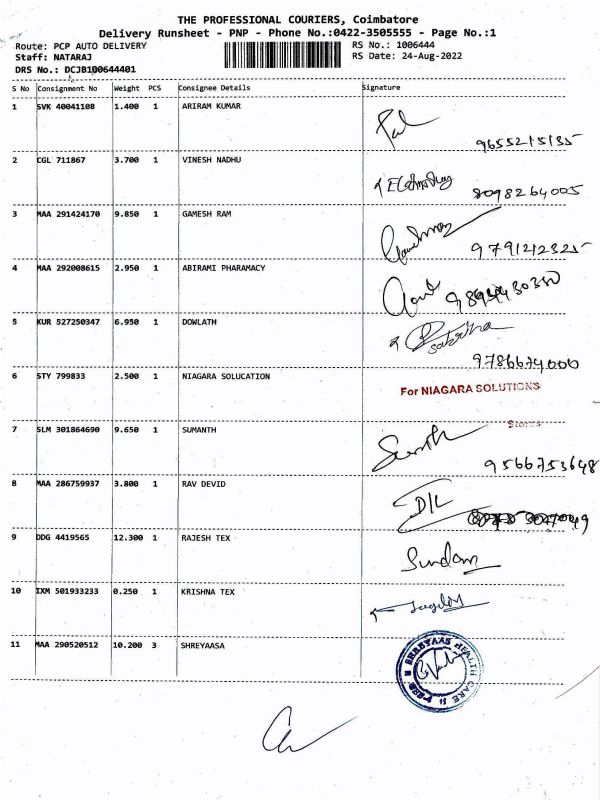 THE PROFESSIONAL COURIERS, Coimbatore
Delivery Runsheet - PNP - Phone No.:0422-3505555 - Page No.:1
Route: PCP AUTO DELIVERY RS No.: 1006444
Staff: NATARAJ RS Date: 24-Aug-2022
DRS No.: DCJB100644401
S No Consignment No Weight PCS Consignee Details Signature
1 SVK 40041108 1.400 1 ARIRAM KUMAR
9655215135
2 CGL 711867 3.700 1 VINESH NADHU
8098264005
3 MAA 291424170 9.850 1 GAMESH RAM
9791212325
4 MAA 292008615 2.950 1 ABIRAMI PHARAMACY
5 KUR 527250347 6.950 1 DOWLATH
9786674000
6 STY 799833 2.500 1 NIAGARA SOLUCATION
For NIAGARA SOLUTIONS
Stores
7 SLM 301864690 9.650 1 SUMANTH
Sumth
9566753648
8 MAA 286759937 3.800 1 RAV DEVID
9 DDG 4419565 12.300 1 RAJESH TEX
Sundam
10 IXM 501933233 0.250 1 KRISHNA TEX
11 MAA 290520512 10.200 3 SHREYAASA
SHREYAAS HEALTH CARE